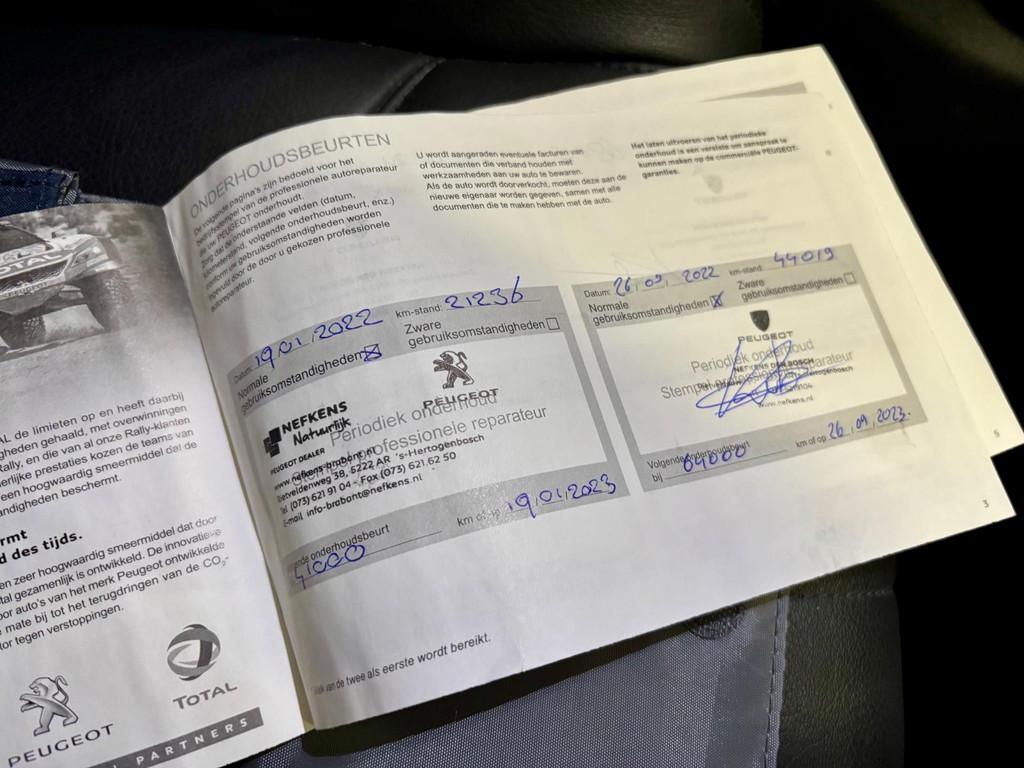 TOTAL
AL de limieten op en heeft daarbij
gheden gehaald, met overwinningen
Rally, en die van al onze Rally-klanten
erlijke prestaties kozen de teams van
een hoogwaardig smeermiddel dat de
ndigheden beschermt.
rmt
d des tijds.
en zeer hoogwaardig smeermiddel dat door
tal gezamenlijk is ontwikkeld. De innovatieve
oor auto's van het merk Peugeot ontwikkelde
mate bij tot het terugdringen van de CO2-
tor tegen verstoppingen.
PEUGEOT
TOTAL
PARTNERS
ONDERHOUDSBEURTEN
De volgende pagina's zijn bedoeld voor het
bedrijfsstempel van de professionele autoreparateur
die uw PEUGEOT onderhoudt.
Zorg dat de onderstaande velden (datum,
kilometerstand, volgende onderhoudsbeurt, enz.)
conform uw gebruiksomstandigheden worden
ingevuld door de door u gekozen professionele
autoreparateur.
U wordt aangeraden eventuele facturen van
of documenten die verband houden met
werkzaamheden aan uw auto te bewaren.
Als de auto wordt doorverkocht, moeten deze aan de
nieuwe eigenaar worden gegeven, samen met alle
documenten die te maken hebben met de auto.
Het laten uitvoeren van het periodieke
onderhoud is een vereiste om aanspraak te
kunnen maken op de commerciële PEUGEOT-
garanties.
Datum: 19,01,2022 km-stand: 21236
Normale gebruiksomstandigheden
Zware gebruiksomstandigheden
PEUGEOT
NEFKENS
Natuurlijk
PEUGEOT DEALER
Periodiek onderhoud
Stempel professionele reparateur
www.nefkens-brabant.nl
Rietveldenweg 38, 5222 AR 's-Hertogenbosch
Tel (073) 621 91 04 - Fax (073) 621 62 50
E-mail info-brabant@nefkens.nl
onderhoudsbeurt
41000 km of op 19,01,2023
Datum: 26,09,2022 km-stand: 44019
Normale gebruiksomstandigheden
Zware gebruiksomstandigheden
PEUGEOT
Periodiek onderhoud
NEFKENS DEN BOSCH
Stempel professionele reparateur
www.nefkens.nl
Volgende onderhoudsbeurt
bij 64000 km of op 26,09,2023.
van de twee als eerste wordt bereikt.
3
5